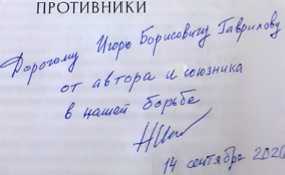 ПРОТИВНИКИ
Дорогому Игорю Борисовичу Гаврилову
от автора и союзника
в нашей борьбе
14 сентября 202